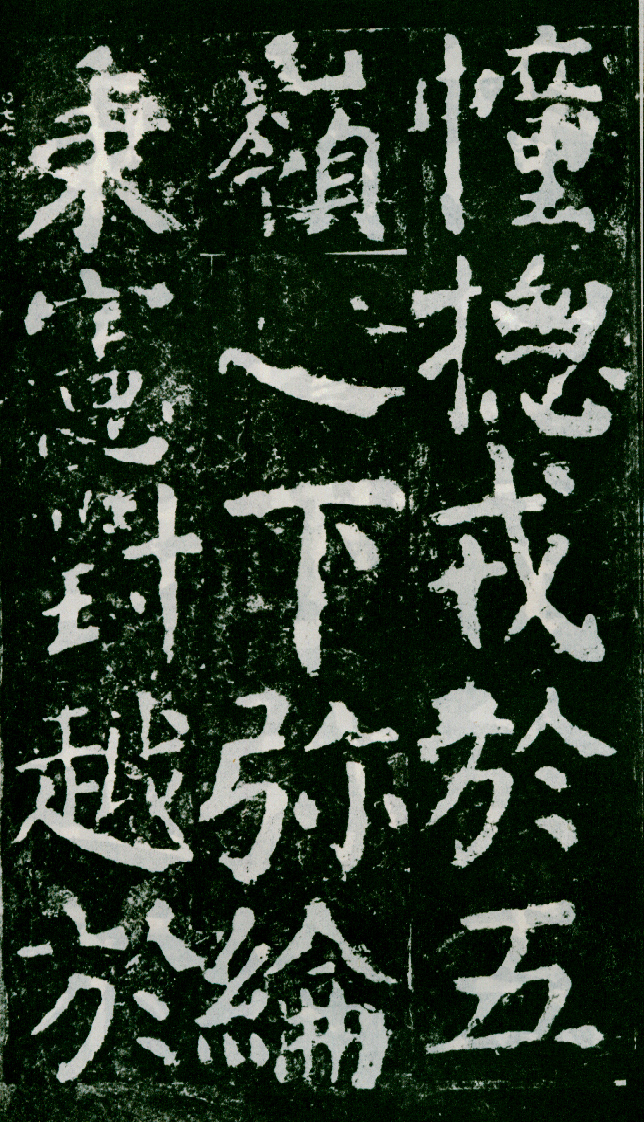 幢揔戎於五
嶺之下弥綸
秉憲對越於